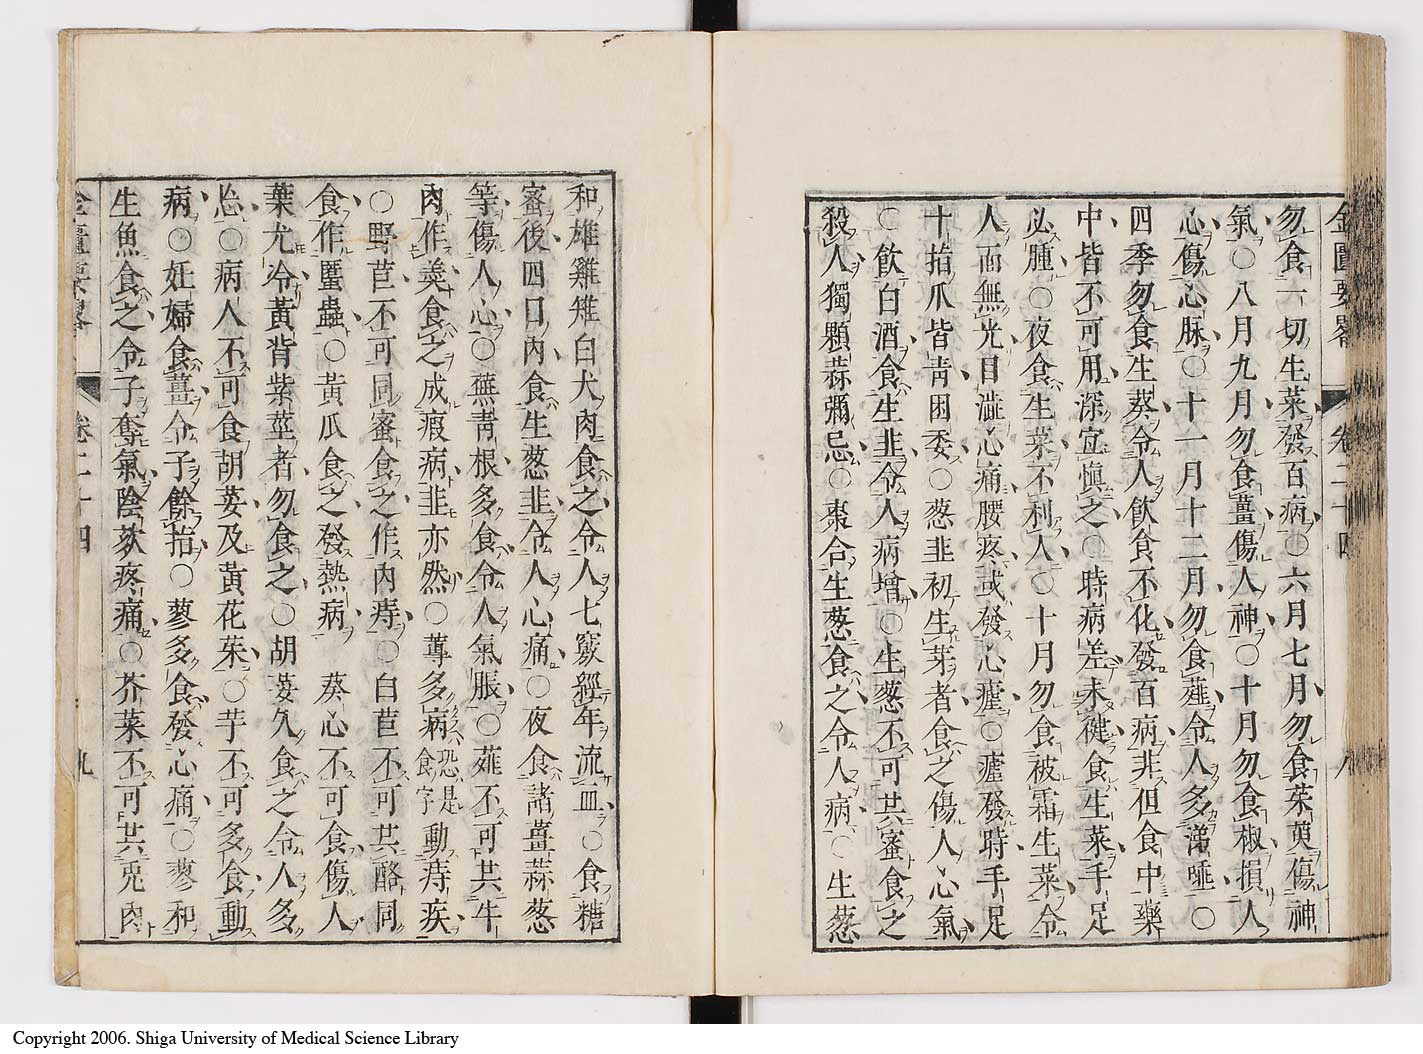 金匱要畧 卷二十四 八
勿食一切生菜發百病○六月七月勿食茱萸傷神
氣○八月九月勿食薑傷人神○十月勿食椒損人
心傷心脉○十一月十二月勿食薤令人多涕唾○
四季勿食生葵令人飲食不化發百病非但食中藥
中皆不可用深宜慎之○時病差未健食生菜手足
必腫○夜食生菜不利人○十月勿食被霜生菜令
人面無光目澁心痛腰疼或發心瘧○瘧發時手足
十指爪皆青困委○葱韭初生芽者食之傷人心氣
○飲白酒食生韭令人病增○生葱不可共蜜食之
殺人獨顆蒜彌忌○棗合生葱食之令人病○生葱
和雄雞雉白犬肉食之令人七竅經年流血○食糖
蜜後四日內食生葱韭令人心痛○夜食諸薑蒜葱
等傷人心○蕪菁根多食令人氣脹○薤不可共牛
肉作羹食之成瘕病韭亦然○蓴多病恐是食字動痔疾
○野苣不可同蜜食之作內痔○白苣不可共酪同
食作䘌蟲○黃瓜食之發熱病 葵心不可食傷人
葉尤冷黃背紫莖者勿食之○胡荽久食之令人多
忘○病人不可食胡荽及黃花茱○芋不可多食動
病○妊婦食薑令子餘指○蓼多食發心痛○蓼和
生魚食之令子奪氣陰欬疼痛○芥菜不可共兎肉
金匱要畧 卷二十四 九
Copyright 2006. Shiga University of Medical Science Library